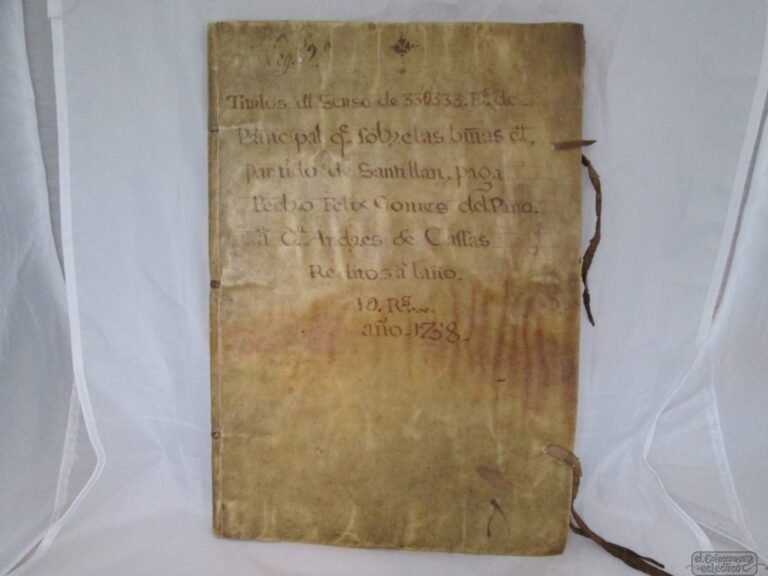 Leg.º 2.º
Titulos dl Senso de 330333. Rs. de
Principal q.e sobre las binas el,
partido de Santillan, paga
Pedro Felix Gomes del Pano.
â D.n Andres de Cassas
Reditos al año.
10. Rs.
año 1738
el Coleccionista
eclectico